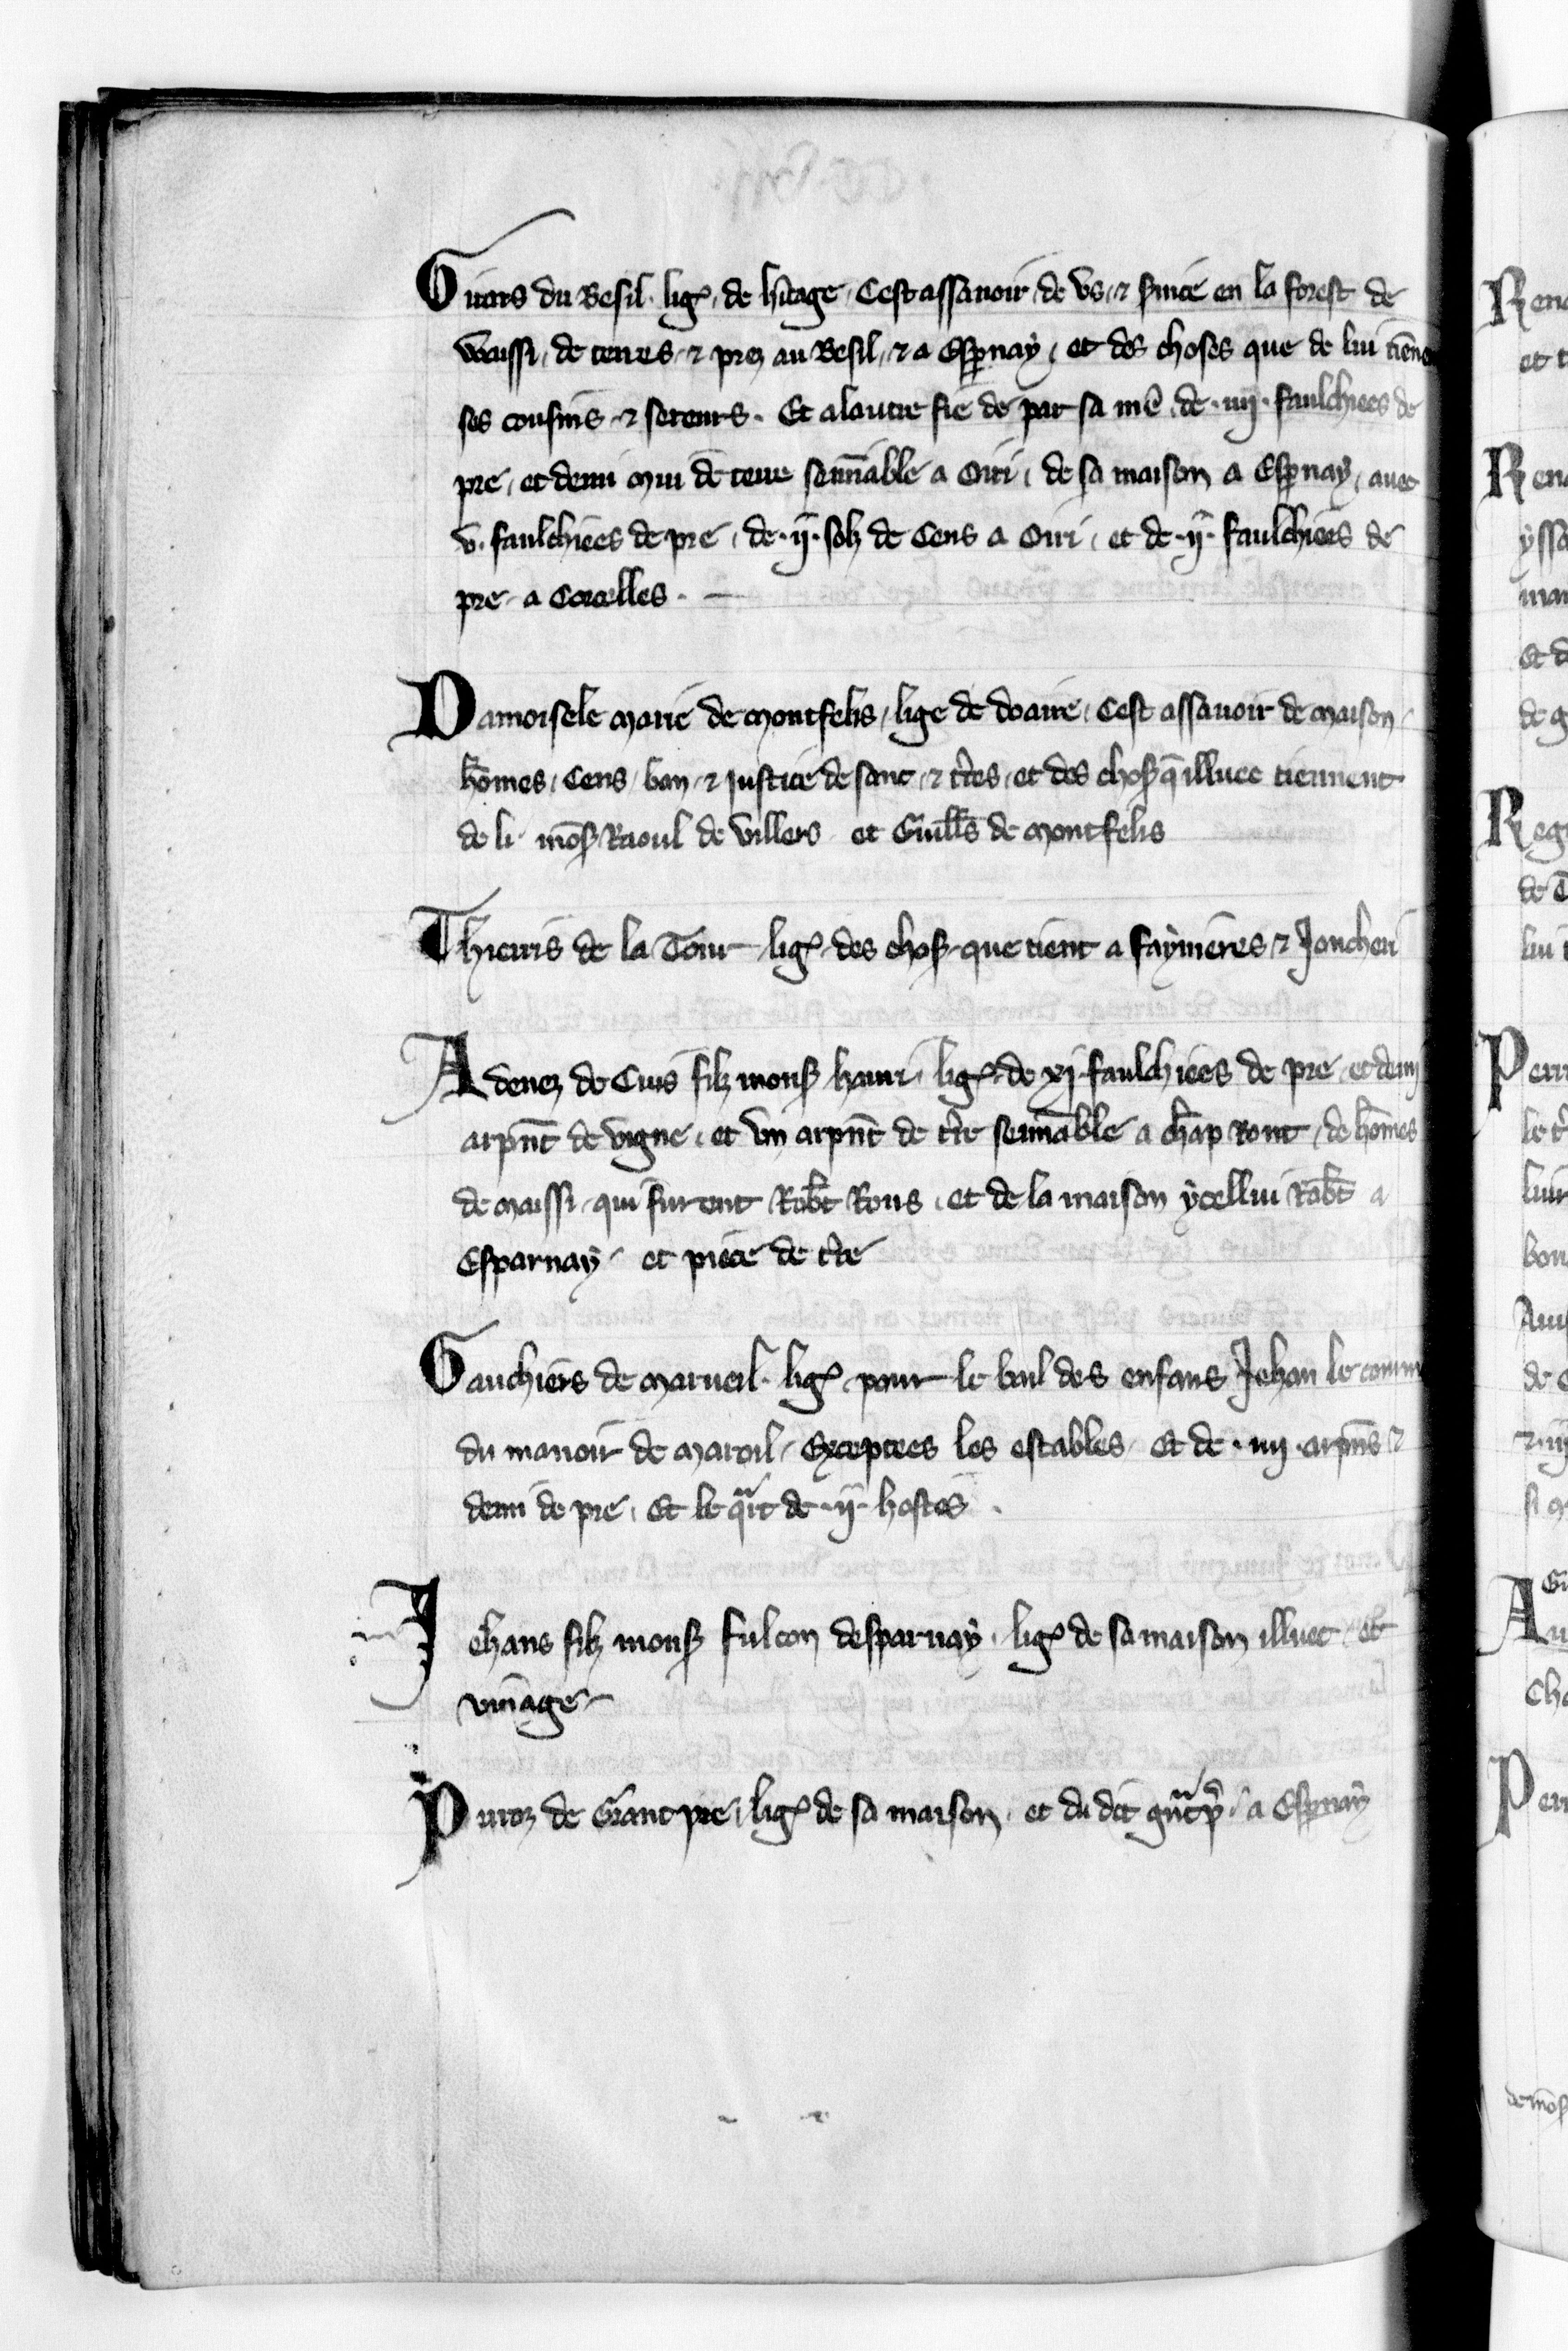 Guiars du Besil · lige · de h̄itage · Cest assauoir de vs · ⁊ Justice en la forest de
Waissi · de terres · ⁊ prez au Besil · ⁊ a Esp̲nay · et des choses que de lui tiēnent
ses cousins ⁊ sereurs · Et a lautre fie de par sa mē̄ · de · iiij · faulchiees de
pre · et demi mui de terre semnable a Oiri · de sa maison a Esp̲nay · auec
v · faulchiees de pre · de · ij · solz de Cens a Oiri · et de · ij · faulchiees de
pre · a Corcelles ·
Damoisele Marie de Montfelis · lige de doaire · Cest assauoir de maison
hōmes · Cens · ban · ⁊ Justice de sanc · ⁊ t̄res · et des chos̄ q̄ illuec tiennent
de li mōs̄ Raoul de Villers et Guill̄s de Montfelis
Thierris de la Tour lige des chos̄ que tient a Faymeres ⁊ Joncheri
Adenez de Cuis filz mons̄ Hanri lige · de xj · faulchiees de pre et demi
arpn̄t de vigne · et vn arpn̄t de t̄re semnable a Chāp Ront · de hōmes
de Maissi qui furent Rob̄t Rous · et de la maison ycellui Rob̄t a
Esparnay et piece de t̄re
Gauchiers de Marueil · lige pour le bail des enfans Jehan le
du manoir de Maroil · Exceptees les estables Et de · iiij · arpn̄s ⁊
demi de pre · Et le qᵃrt de · ij · hostes ·
Jehans filz mons̄ Fulcon desparnay · lige de sa maison illuec et
vinage
Pieroz de Grant pre · lige de sa maison · et du dit gᵃntp̄ · a Esp̲nay